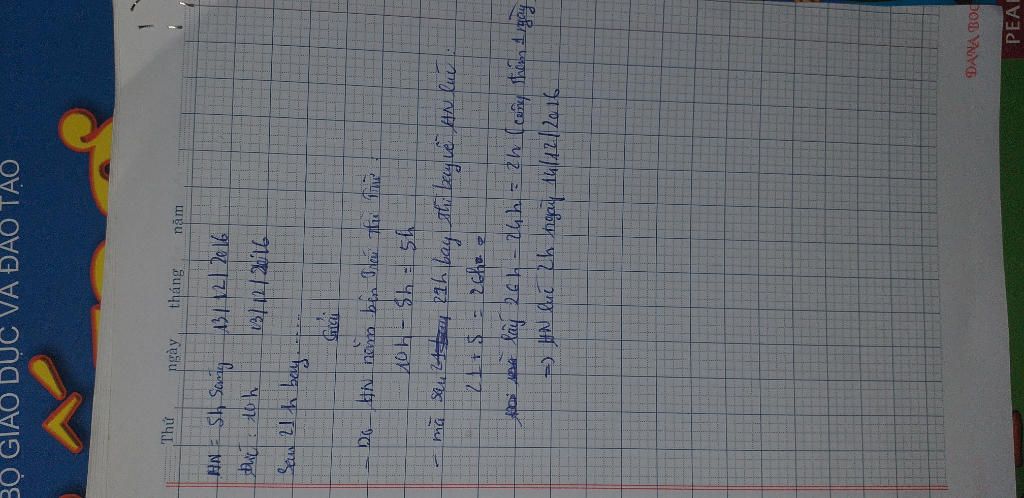 BỘ GIÁO DỤC VÀ ĐÀO TẠO
Thứ ngày tháng năm
HN = 5h sáng 13/12/2016
Đức : 10h 13/12/2016
Sau 21 h bay ....
Giải
- Do HN nằm bên trái thì trừ :
10h - 5h = 5h
- mà sau 21h bay thì bay về HN lúc :
21 + 5 = 26h
lấy 26h - 24h = 2h (cộng thêm 1 ngày
=> HN lúc 2h ngày 14/12/2016
DANA BOO
PEAR